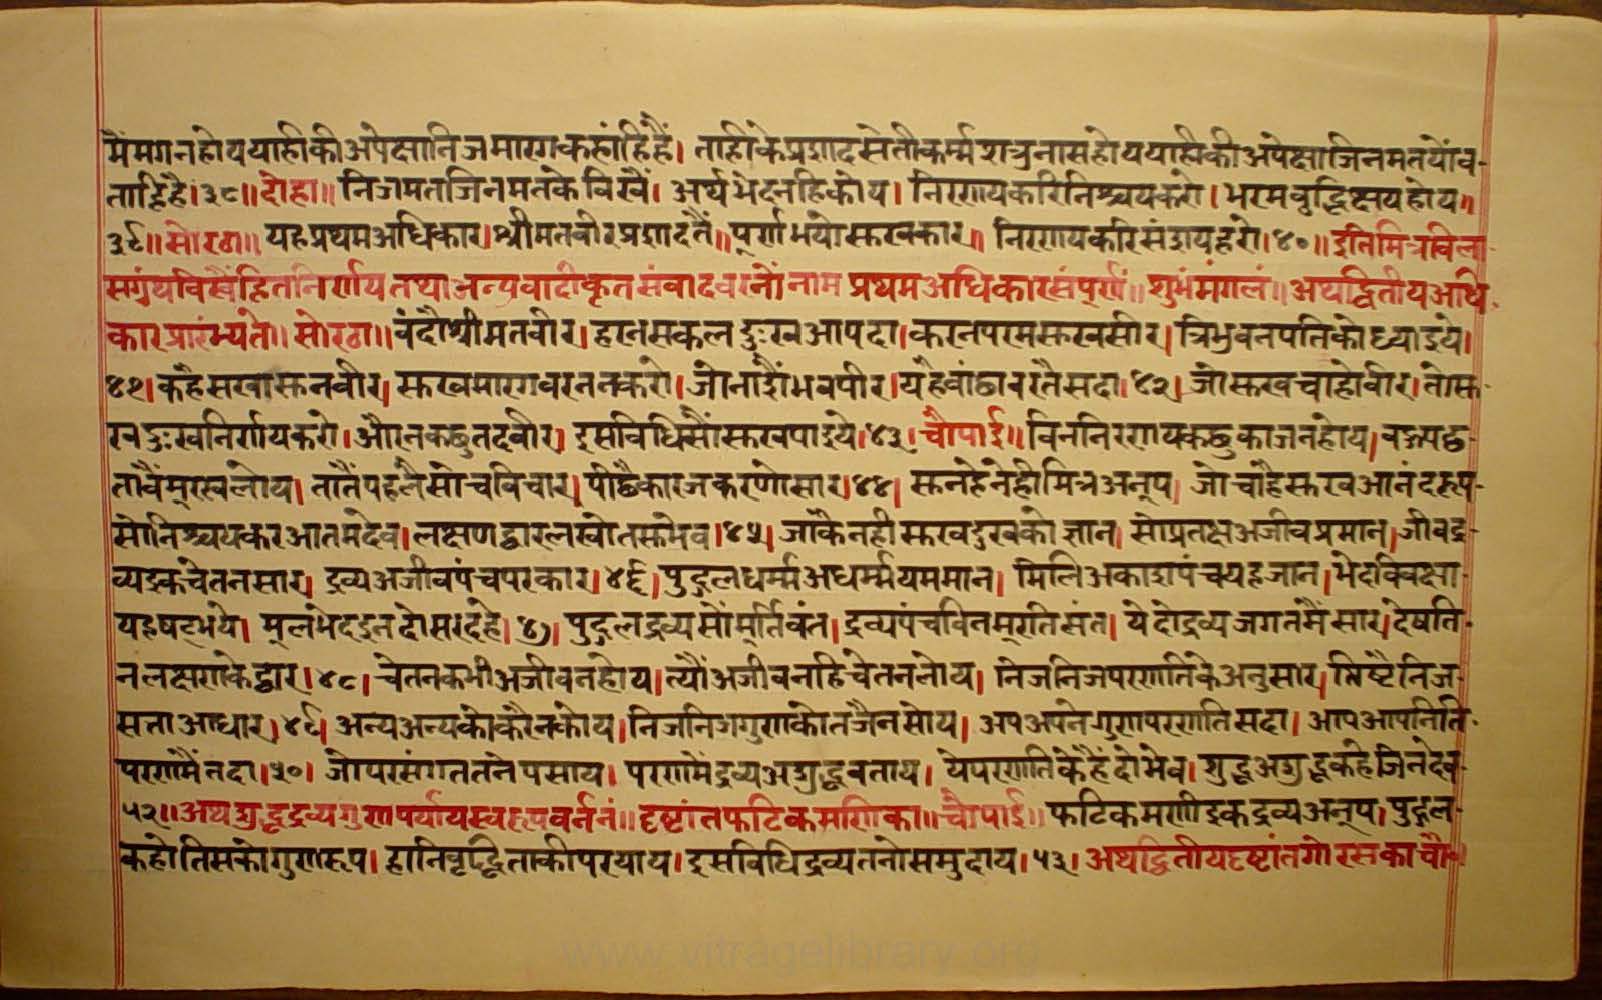 मैंमगनहोययाहीकीअपेक्षानिजमारगकहांहिंहैं। ताहीकेप्रशादसेतीकर्म्मशत्रुनासहोययाहीकीअपेक्षाजिनमतयोंव-
ताहिहै।३८॥दोहा॥ निजमतजिनमतकेविखैं। अर्थभेदनहिकोय। निरणायकरिनिश्चयकरो। भरमवृद्धिक्षयहोय॥
३९॥सोरठा॥ यहप्रथमअधिकार।श्रीमतवीरप्रशादतैं॥पूर्णभयोसुखकार॥ निरणायकरिसंशयहरो।४०॥इतिमित्रविला-
सग्रंथविखैंहितनिर्णयतथाअन्यवादीकृतसंवादवरनोंनामप्रथमअधिकारसंपूर्णं॥शुभंमंगलं॥अथद्वितीयअधि-
कारप्रारंभ्यते॥सोरठा॥वंदौश्रीमतवीर।हरनसकलदुःखआपदा।करनपरमसुखसीर।त्रिभुवनपतिकोध्याइये।
४१।कहैसखासुनवीर।सुखमारगवरननकरो।जोनाशैंभवपीर।यहैवांछावरतैसदा।४२।जोसुखचाहोवीर।तोसु-
खदुःखनिर्णायकरो।औरनकछुतदवीर।इसविधिसौंसुखपाइये।४३।चौपाई॥विननिरणायकछुकाजनहोय।वज्यपछ-
तावैंमूरखलोय।तातैंपहलैसोचविचार।पीछैकारजकरणोसार।४४।सुनहेनेहीमित्रअनूप।जोचाहैसुखआनंदरूप-
सोनिश्चयकरआतमदेव।लक्षणद्वारलखोतसुभेव।४५।जाकैनहीसुखदुखकोज्ञान।सोप्रतक्षअजीवप्रमान।जीवद्र-
व्यइकचेतनसार।द्रव्यअजीवपंचपरकार।४६।पुद्गलधर्म्मअधर्म्मयममान।मिलिअकाशपंचयहजान।भेदविवक्षा-
यहषट्भये।मूलभेदइनदोसरदहे।४७।पुद्गलद्रव्यसोंमूर्तिवंत।द्रव्यपंचविनमूरतिसंत।येदोद्रव्यजगतमैंसार।देषति-
नलक्षणकेद्वार।४८।चेतनकभीअजीवनहोय।त्यौंअजीवनहिचेतनजोय।निजनिजपरणातिकेअनुसार।तिष्टैनिज-
सत्ताआधार।४९।अन्यअन्यकोकरैनकोय।निजनिजगुणाकोतजैनसोय।अपअपनेगुणापरणातिसदा।आपआपनिति-
परणमैंतदा।५०।जोपरसंगततनेपसाय।परणमैंद्रव्यअशुद्धबताय।येपरणातिकेहैंदोभेव।शुद्धअशुद्धकहैजिनदेव-
५२॥अथशुद्धद्रव्यगुणापर्यायस्वरूपवर्ननं॥दृष्टांतफटिकमणिका॥चौपाई॥फटिकमणीइकद्रव्यअनूप।पुद्गल-
कहौतिसकोगुणारूप।हानिवृद्धिताकीपरयाय।इसविधिद्रव्यतनोसमुदाय।५३।अथद्वितीयदृष्टांतगोरसकाचौ०।
www.vitragelibrary.org